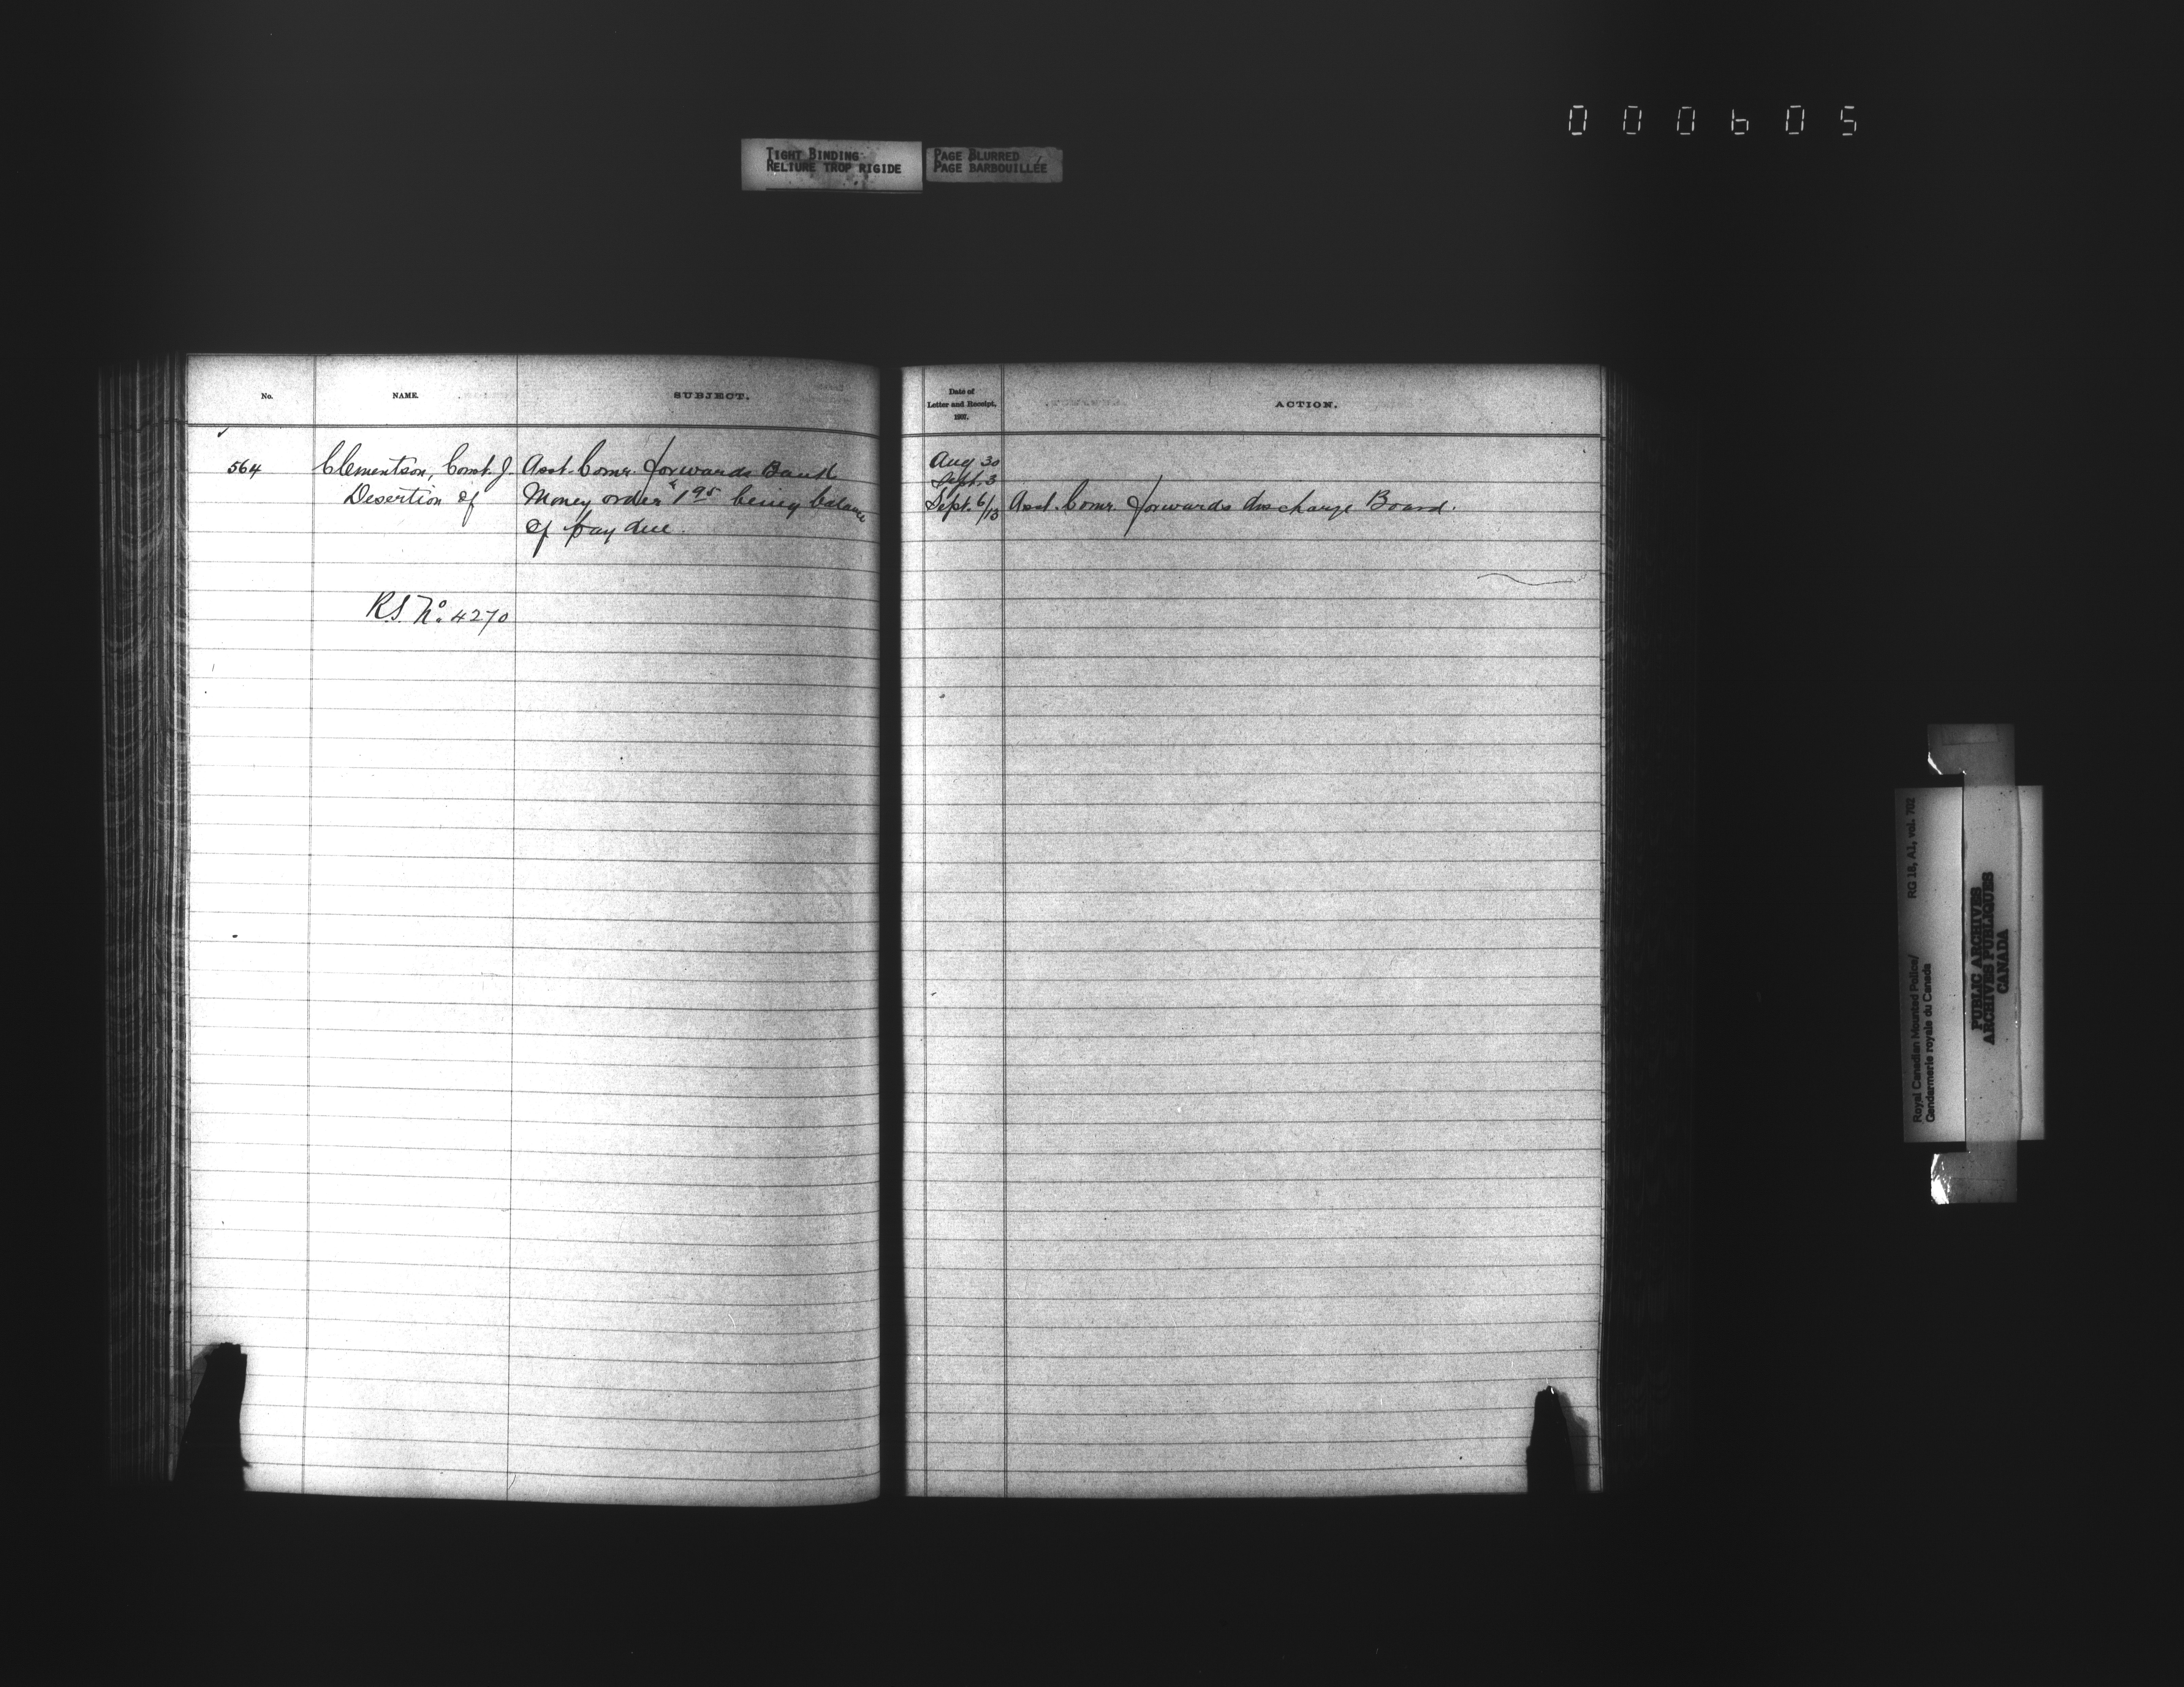 000605
TIGHT BINDING
RELIURE TROP RIGIDE
PAGE BLURRED
PAGE BARBOUILLÉE
No.
NAME.
SUBJECT.
564
Clementson, Const. J.
Desertion of
R.S. No. 4270
Asst. Comr. forwards Bank
Money order $1.95 being balance
of pay due.
Date of
Letter and Receipt,
1907.
ACTION.
Aug 30
Sept. 3
Sept. 6/13 Asst. Comr. forwards discharge Board.
RG 18, A1, vol. 702
Royal Canadian Mounted Police/
Gendarmerie royale du Canada
PUBLIC ARCHIVES
ARCHIVES PUBLIQUES
CANADA